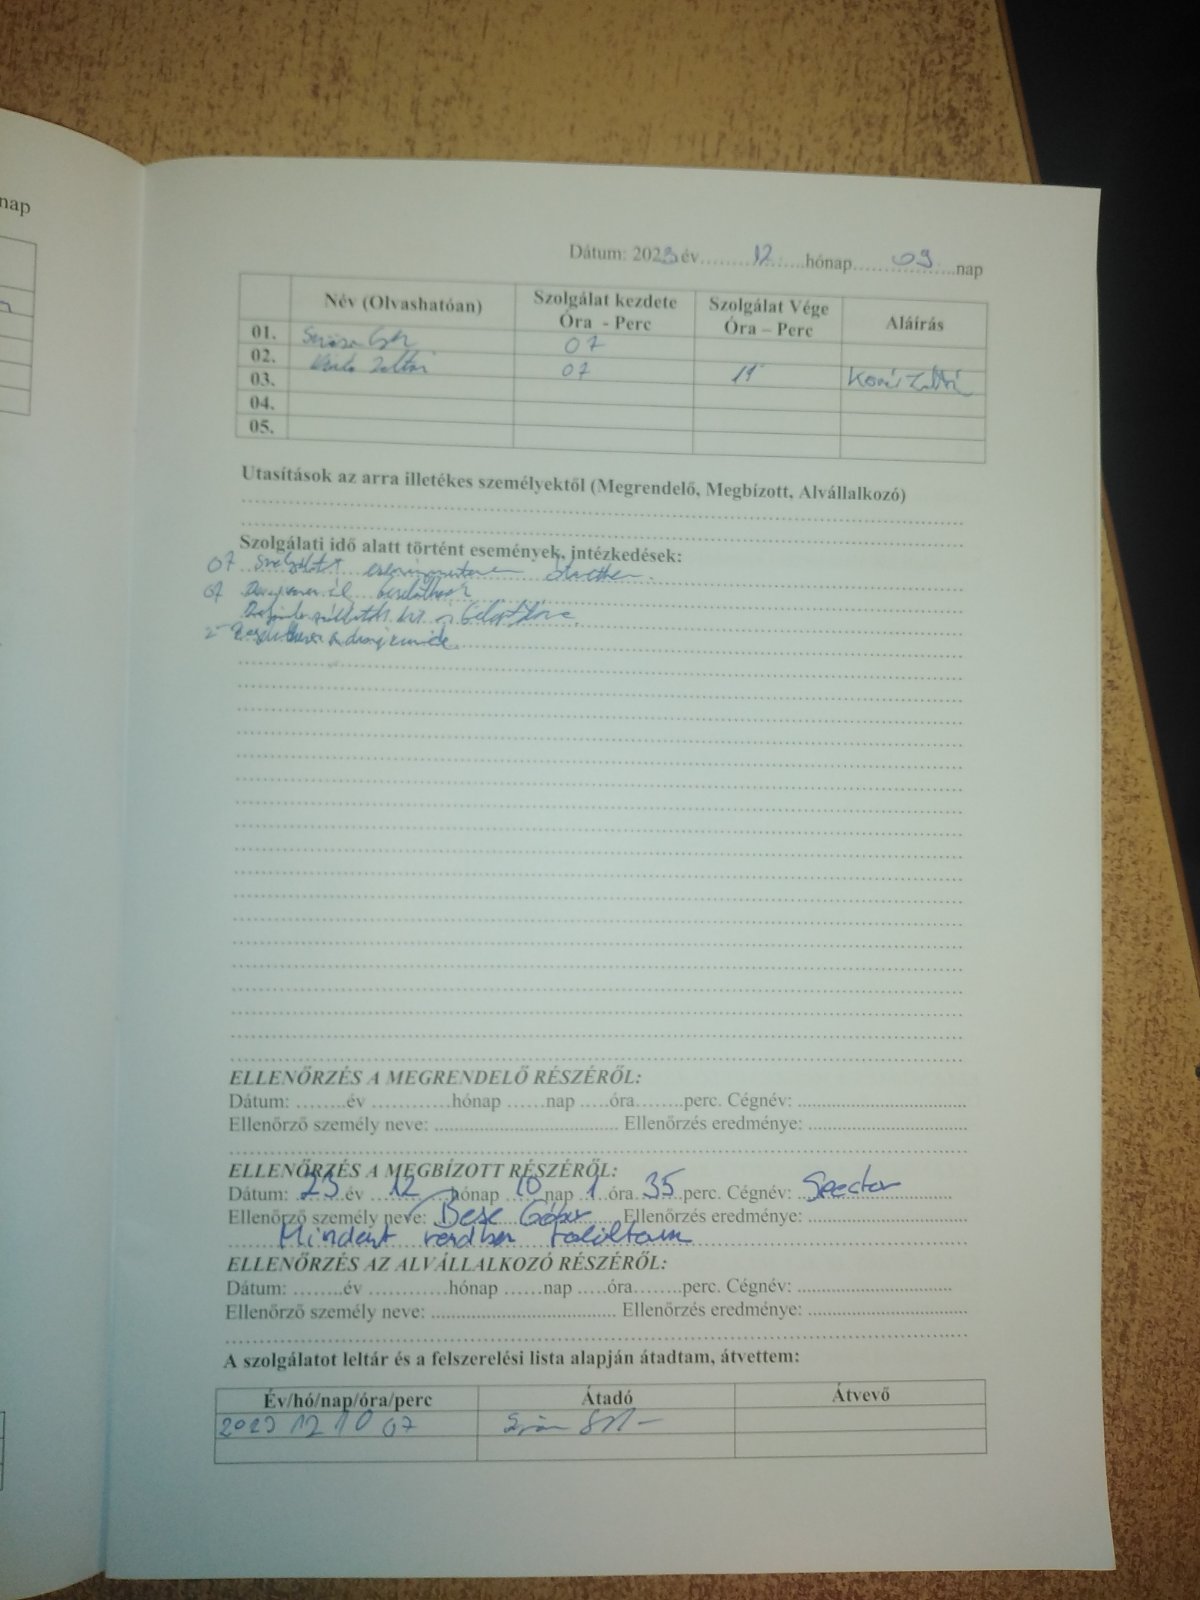 nap
Dátum: 2023 év............12......hónap........09....nap
Név (Olvashatóan) Szolgálat kezdete Óra - Perc Szolgálat Vége Óra – Perc Aláírás
01. 07
02. Zoltán 07 19
03.
04.
05.
Utasítások az arra illetékes személyektől (Megrendelő, Megbízott, Alvállalkozó)
Szolgálati idő alatt történt események, intézkedések:
07 Szolgálatot eseménymentesen átvettem.
07
ELLENŐRZÉS A MEGRENDELŐ RÉSZÉRŐL:
Dátum: ........év ............hónap ......nap .....óra........perc. Cégnév: ....................................
Ellenőrző személy neve: ...................................... Ellenőrzés eredménye: .................................
ELLENŐRZÉS A MEGBÍZOTT RÉSZÉRŐL:
Dátum: 23 év 12 hónap 10 nap 1 óra 35 perc. Cégnév: Spector
Ellenőrző személy neve: Bese Gábor Ellenőrzés eredménye: .................................
Mindent rendben találtam
ELLENŐRZÉS AZ ALVÁLLALKOZÓ RÉSZÉRŐL:
Dátum: ........év ............hónap ......nap .....óra........perc. Cégnév: .................................
Ellenőrző személy neve: ...................................... Ellenőrzés eredménye: .................................
A szolgálatot leltár és a felszerelési lista alapján átadtam, átvettem:
Év/hó/nap/óra/perc Átadó Átvevő
2023 12 10 07